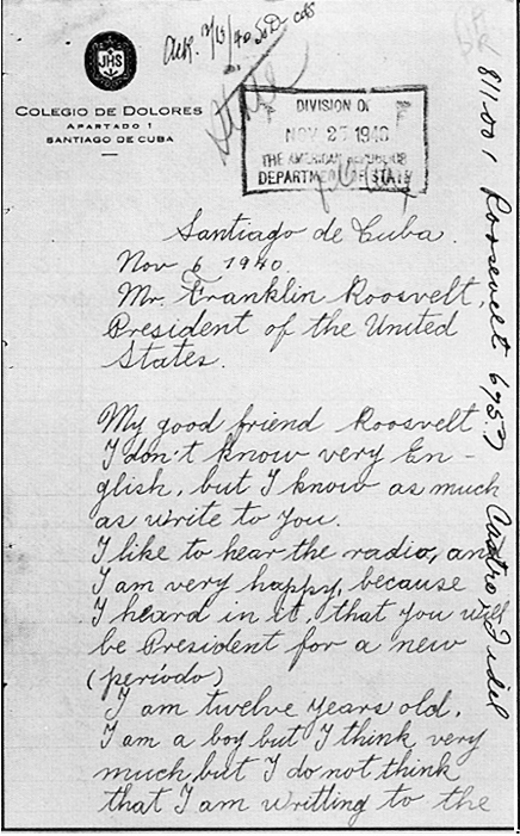 JHS
COLEGIO DE DOLORES
APARTADO 1
SANTIAGO DE CUBA
DIVISION OF
NOV 25 1940
THE AMERICAN REPUBLICS
DEPARTMENT OF STATE
Santiago de Cuba.
Nov 6 1940.
Mr. Franklin Roosvelt,
President of the United
States.
My good friend Roosvelt
I don't know very En-
glish, but I know as much
as write to you.
I like to hear the radio, and
I am very happy, because
I heard in it, that you will
be President for a new
(período)
I am twelve years old.
I am a boy but I think very
much, but I do not think
that I am writting to the
811.001 Roosevelt Castro, Fidel